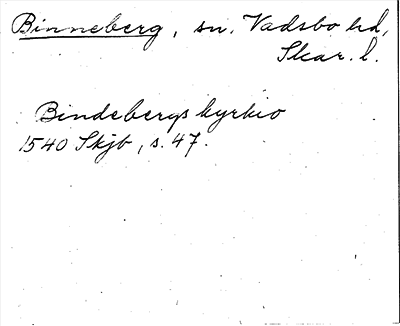 Binneberg, sn. Vadsbo hd,
Skar. l.
Bindebergs kyrkio
1540 Skjb, s. 47.